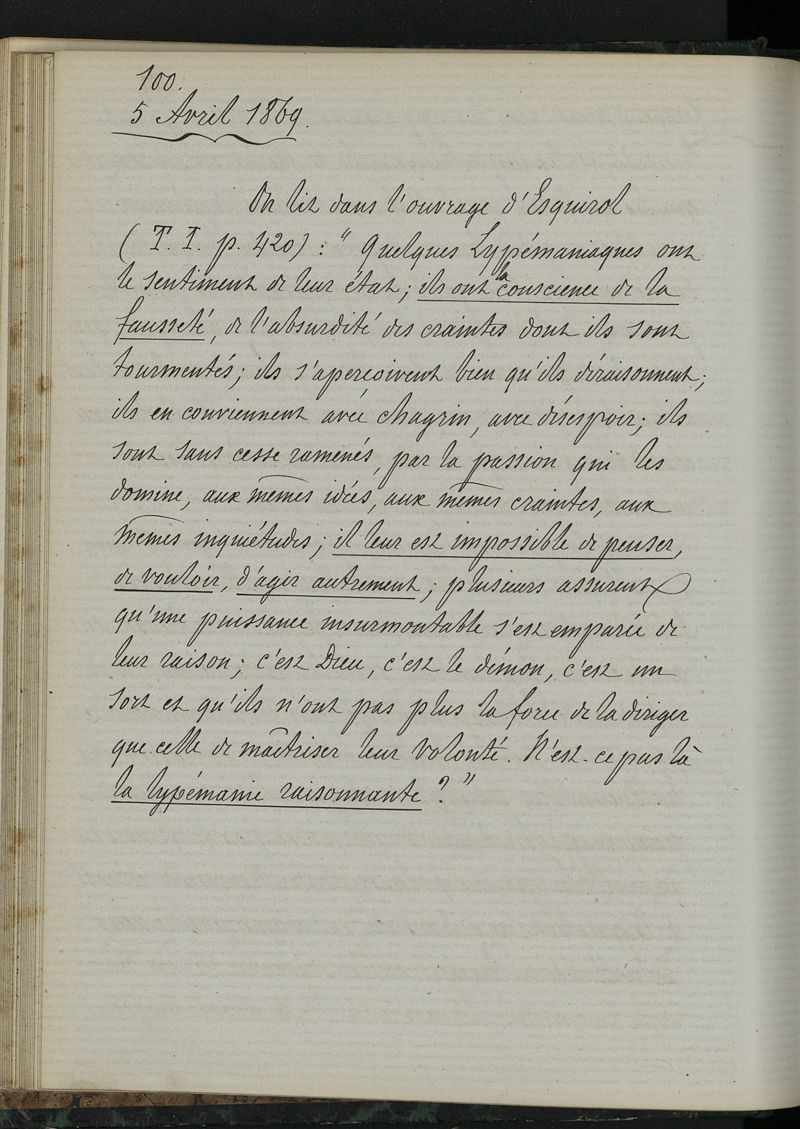 100.
5 Avril 1869.
On lit dans l'ouvrage d'Esquirol
(T. I. p. 420) : " Quelques Lypémaniaques ont
le sentiment de leur état ; ils ont la conscience de la
fausseté, de l'absurdité des craintes dont ils sont
tourmentés ; ils s'aperçoivent bien qu'ils déraisonnent ;
ils en conviennent avec chagrin, avec désespoir ; ils
sont sans cesse ramenés, par la passion qui les
domine, aux mêmes idées, aux mêmes craintes, aux
mêmes inquiétudes ; il leur est impossible de penser,
de vouloir, d'agir autrement ; plusieurs assurent
qu'une puissance insurmontable s'est emparée de
leur raison ; c'est Dieu, c'est le démon, c'est un
sort et qu'ils n'ont pas plus la force de la diriger
que celle de maîtriser leur volonté. N'est-ce pas là
la lypémanie raisonnante ? "